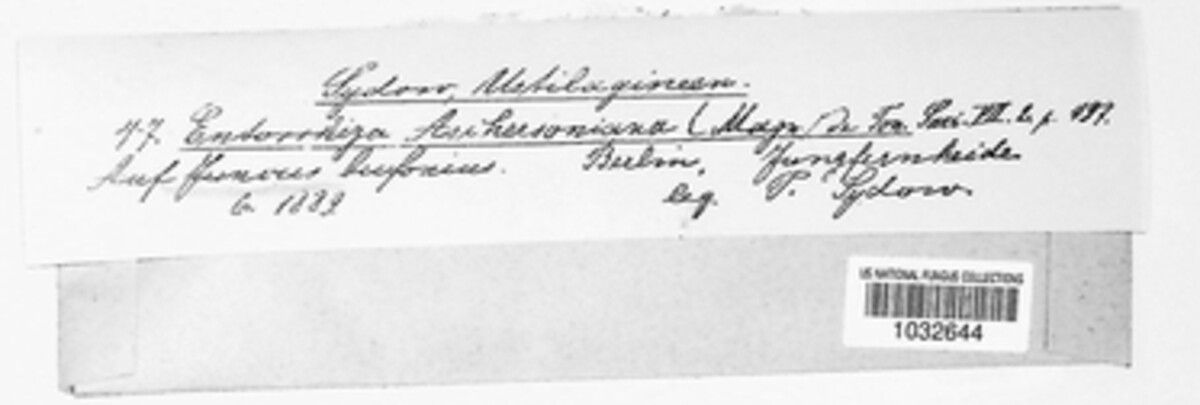 Sydow, Ustilagineen.
47. Entorrhiza Aschersoniana (Magn.) De Ton. VII. 2. p.
Auf Juncus bufonius. Berlin, Jungfernheide
6. 1889 leg. P. Sydow.
US NATIONAL FUNGUS COLLECTIONS
1032644